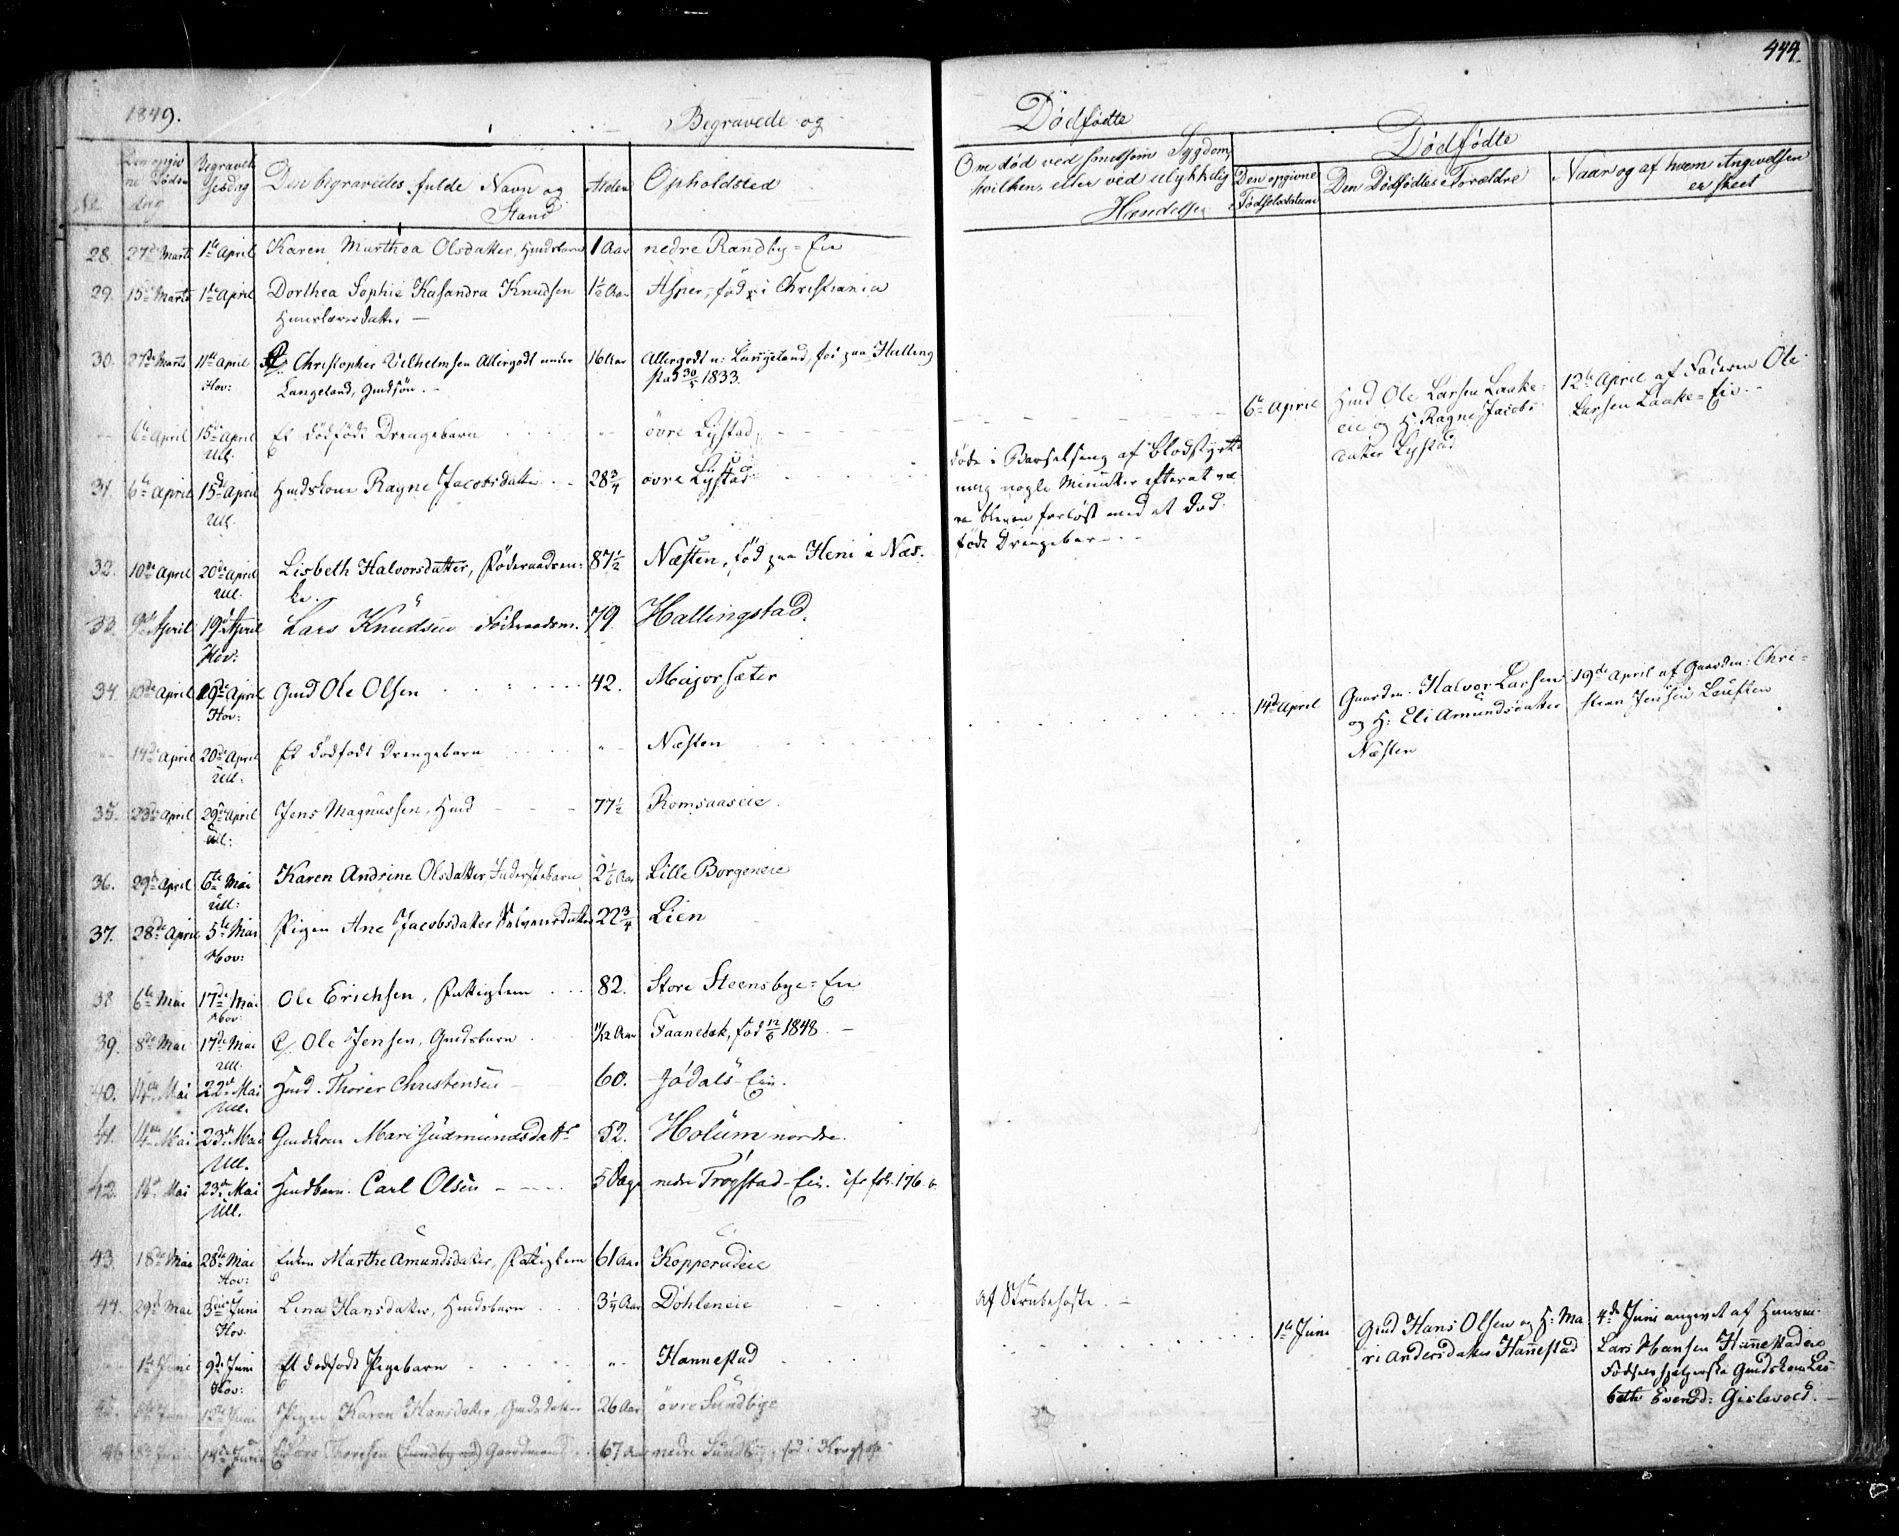 444.
1849.
Begravede og
Dødfødte
No
Den opgivne Dødsdag
Begravelsesdag
Den begravedes fulde Navn og
Stand
Alder
Opholdsted
Om død ved smitsom Sygdom,
hvilken, eller ved ulykkelig
Hændelse
Dødfødte
Den opgivne
Fødselsdatum
Den Dødfødtes Forældre
Naar og af hvem Angivelsen
er skeet
28. 27de Marts 1ste April Karen Marthea Olsdatter, Huusbarn 1 Aar nedre Randby-Eie
29. 15de Marts 1ste April Dorthea Sophie Kasandra Knudsen 1½ Aar Asper, fød i Christiania
30. 27de Marts 11te April Christopher Vilhelmsen Allergodt under 16 Aar Allergodt u: Langeland, fød paa Halling
Hov: Langeland, Gmdsøn. stad 30/5 1833.
6te April 15de April Et dødfødt Drengebarn øvre Lystad
Ull:
6te April Huusd Ole Larsen Laake-
eie og H. Ragne Jacobs-
datter Lystad
12te April af Faderen Ole
Larsen Laake-Eie.
31. 6te April 15de April Huusdskone Ragne Jacobsdatter 28¾ øvre Lystad
Ull.
døde i Barselseng af Blodstyrt-
ning nogle Minuter efter at væ-
re bleven forløst med et død-
født Drengebarn.
32. 10de April 20de April Lisbeth Halvorsdatter, Føderaadsen- 87½ Næsten, fød paa Heni i Næs.
Ull. ke.
33. 9de April 19de April Lars Knudsen Føderaadsm. 79. Hallingstad.
Hov:
34. 10de April 19de April Gmd Ole Olsen 42. Majorsæter
Hov:
14de April 20de April Et dødfødt Drengebarn Næsten
Ull:
14de April Gaardm. Halvor Larsen
og H: Eli Amundsdatter
Næsten
19de April af Gaardm: Chri-
stian Jensen
35. 23de April 29de April Jens Magnussen, Huusd 77½ Romsaaseie.
Ull:
36. 29de April 6te Mai Karen Andrine Olsdatter, Inderstebarn 2 1/6 Aar Lille Borgeneie
Ull:
37. 28de April 5te Mai Pigen Ane Jacobsdatter 22¾ Lien
Hov:
38 6te Mai 17de Mai Ole Erichsen, Fattiglem 82. Store Steensbye-Eie
Hov:
39. 8de Mai 17de Mai Ole Jensen, Gmdsbarn 11/12 Aar Faanebæk, fød 12/6 1848.
Ull.
40. 14de Mai 22de Mai Huusd. Thorer Christensen 60. Jødals-Eie.
Ull.
41. 14de Mai 23de Mai Gmdskone Mari Gudmundsdattr 52. Holum nordre.
Ull.
42. 14de Mai 23de Mai Huusdbarn. Carl Olsen 5 Dage nedre Trøgstad-Eie. cfr fol. 176 b.
Ull.
43. 18de Mai 28de Mai Enken Marthe Amundsdatter, Fattiglem 61 Aar Kopperudeie
Hov:
44. 29de Mai 3die Juni Lina Hansdatter, Huusdsbarn 3¼ Aar Døhleneie
Hov.
af Strubehoste.
1ste Juni 9de Juni Et dødfødt Pigebarn Hannestad
Hov:
1ste Juni Gmd Hans Olsen og H: Ma
ri Andersdatter Hannestad
4de Juni angivet af Huusm.
Lars Hansen Hannestadeie
Fødselshjelperske Gmdskone Lis-
beth Evensd: Gislevold.
45. Juni 12te Juni Pigen Karen Hansdatter, Gmdsdatter 26 Aar øvre Sundbye
46 Juni 14de Juni Thoresen (Sundby ned) Gaardmand 67 Aar nedre Sundby, fød i